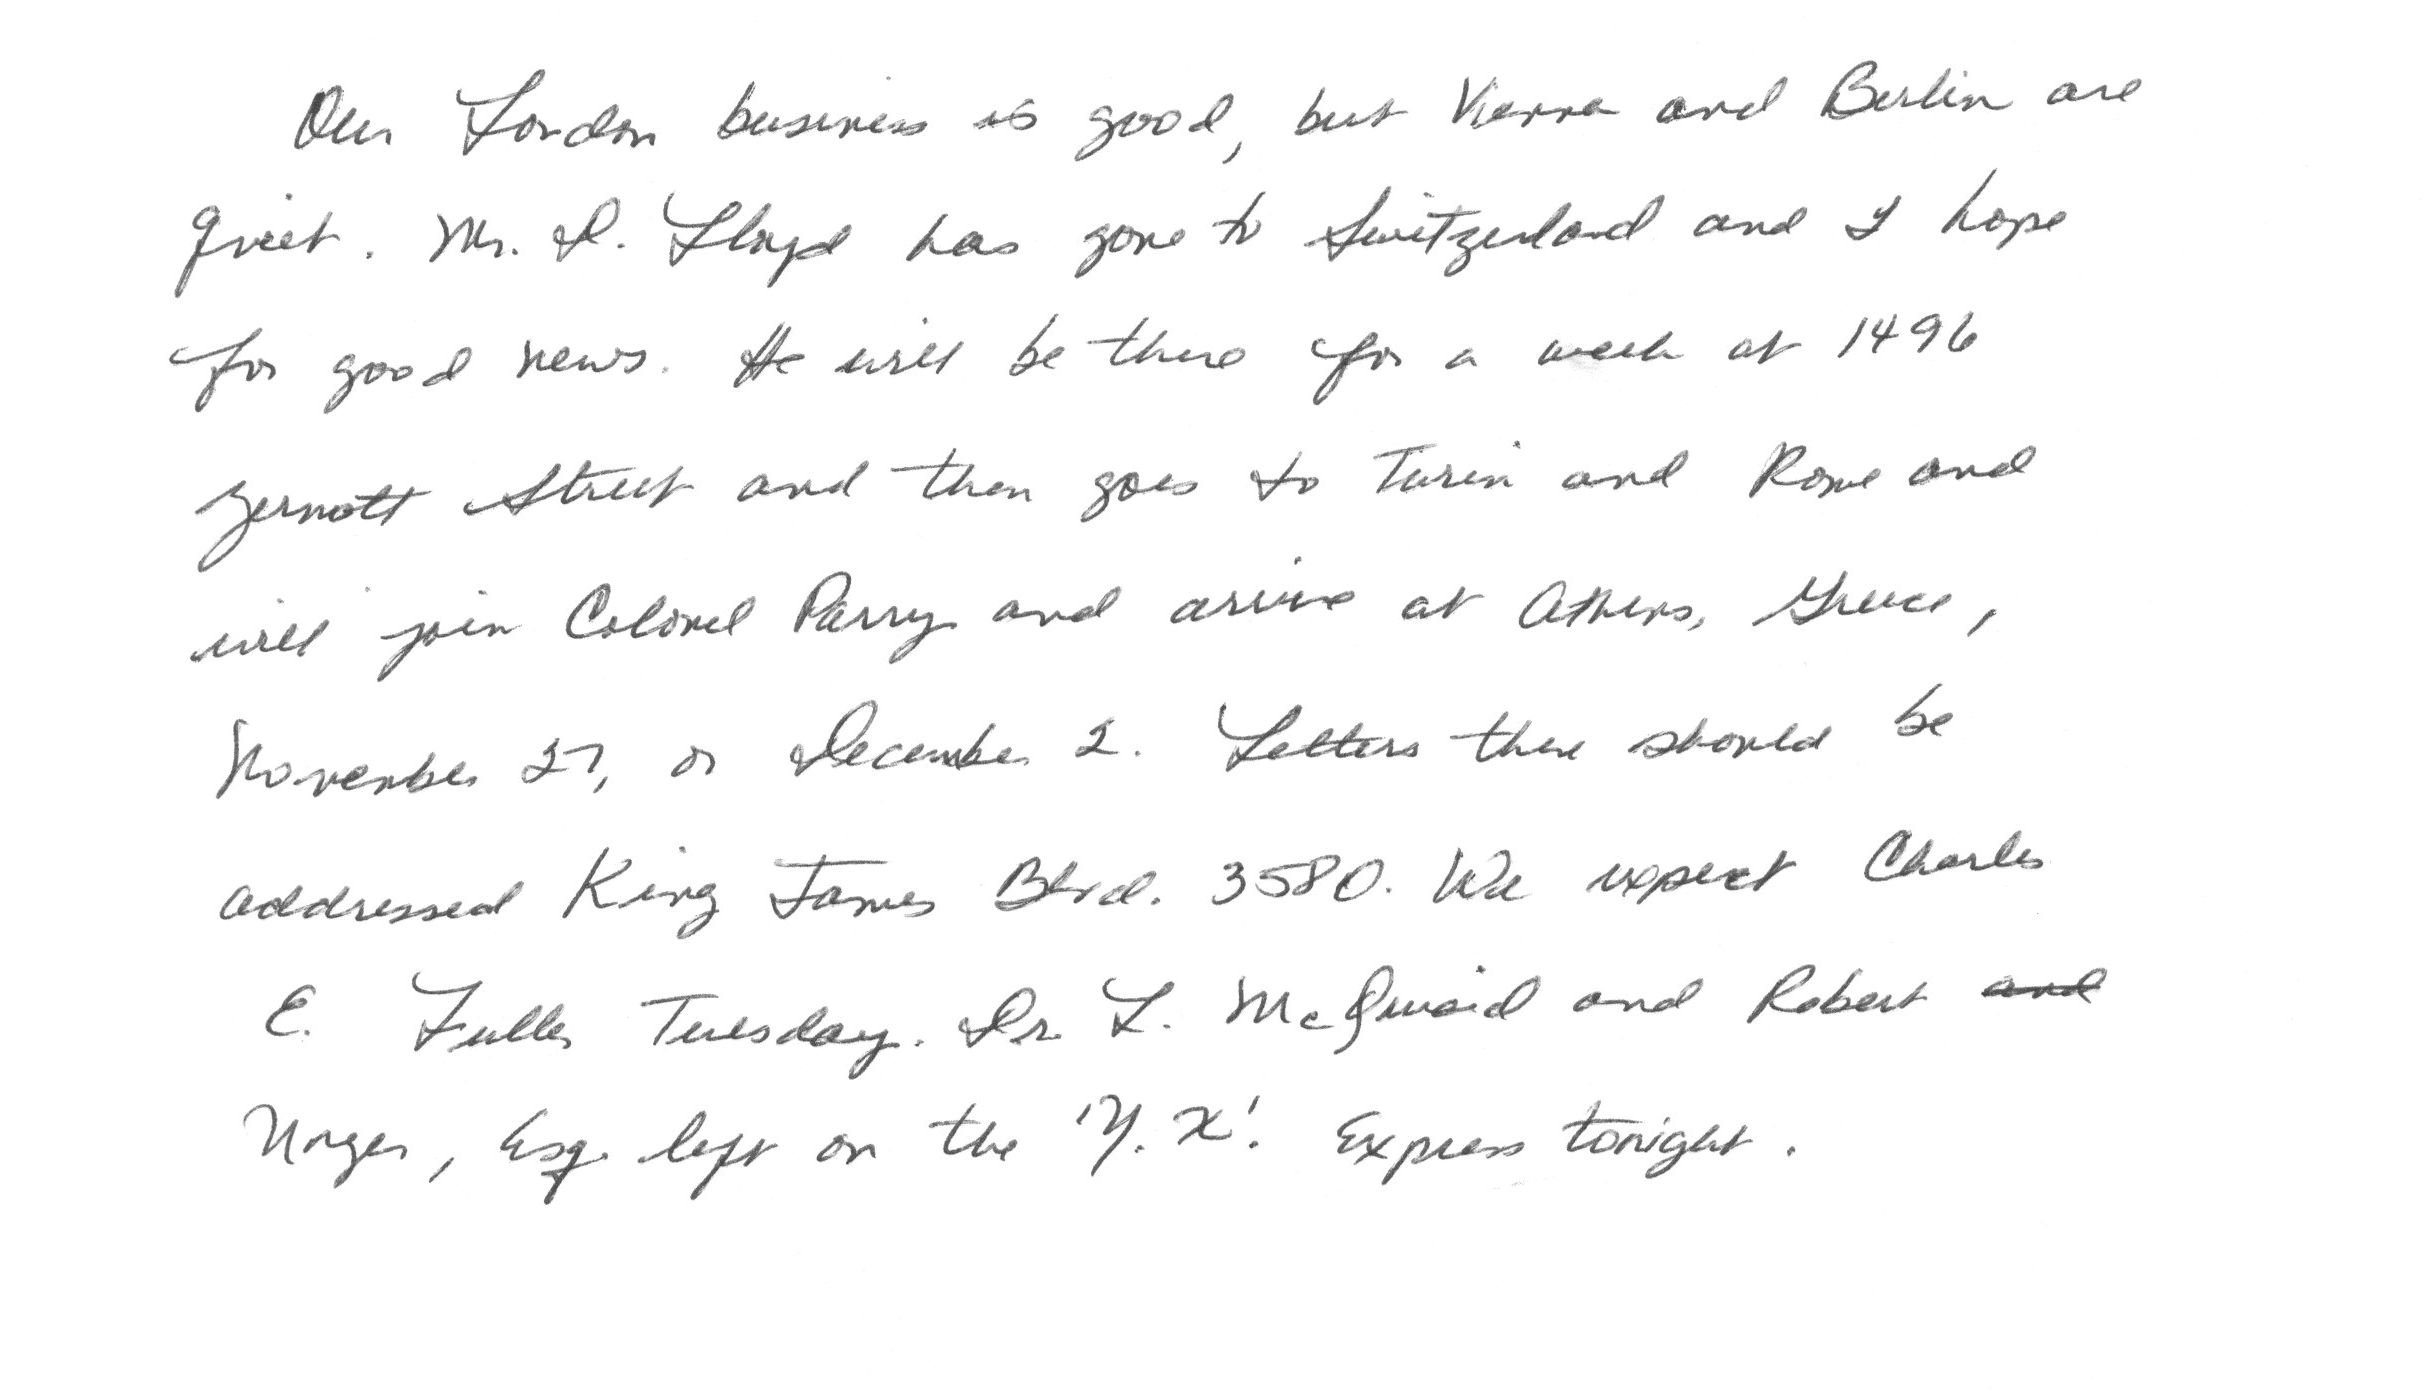 Our London business is good, but Vienna and Berlin are
quiet. Mr. D. Lloyd has gone to Switzerland and I hope
for good news. He will be there for a week at 1496
Zermott Street and then goes to Turin and Rome and
will join Colonel Parry and arrive at Athens, Greece,
November 27, or December 2. Letters there should be
addressed King James Blvd. 3580. We expect Charles
E. Fuller Tuesday. Dr. L. McQuaid and Robert and
Unger, Esq. left on the 'Y. X'. Express tonight.